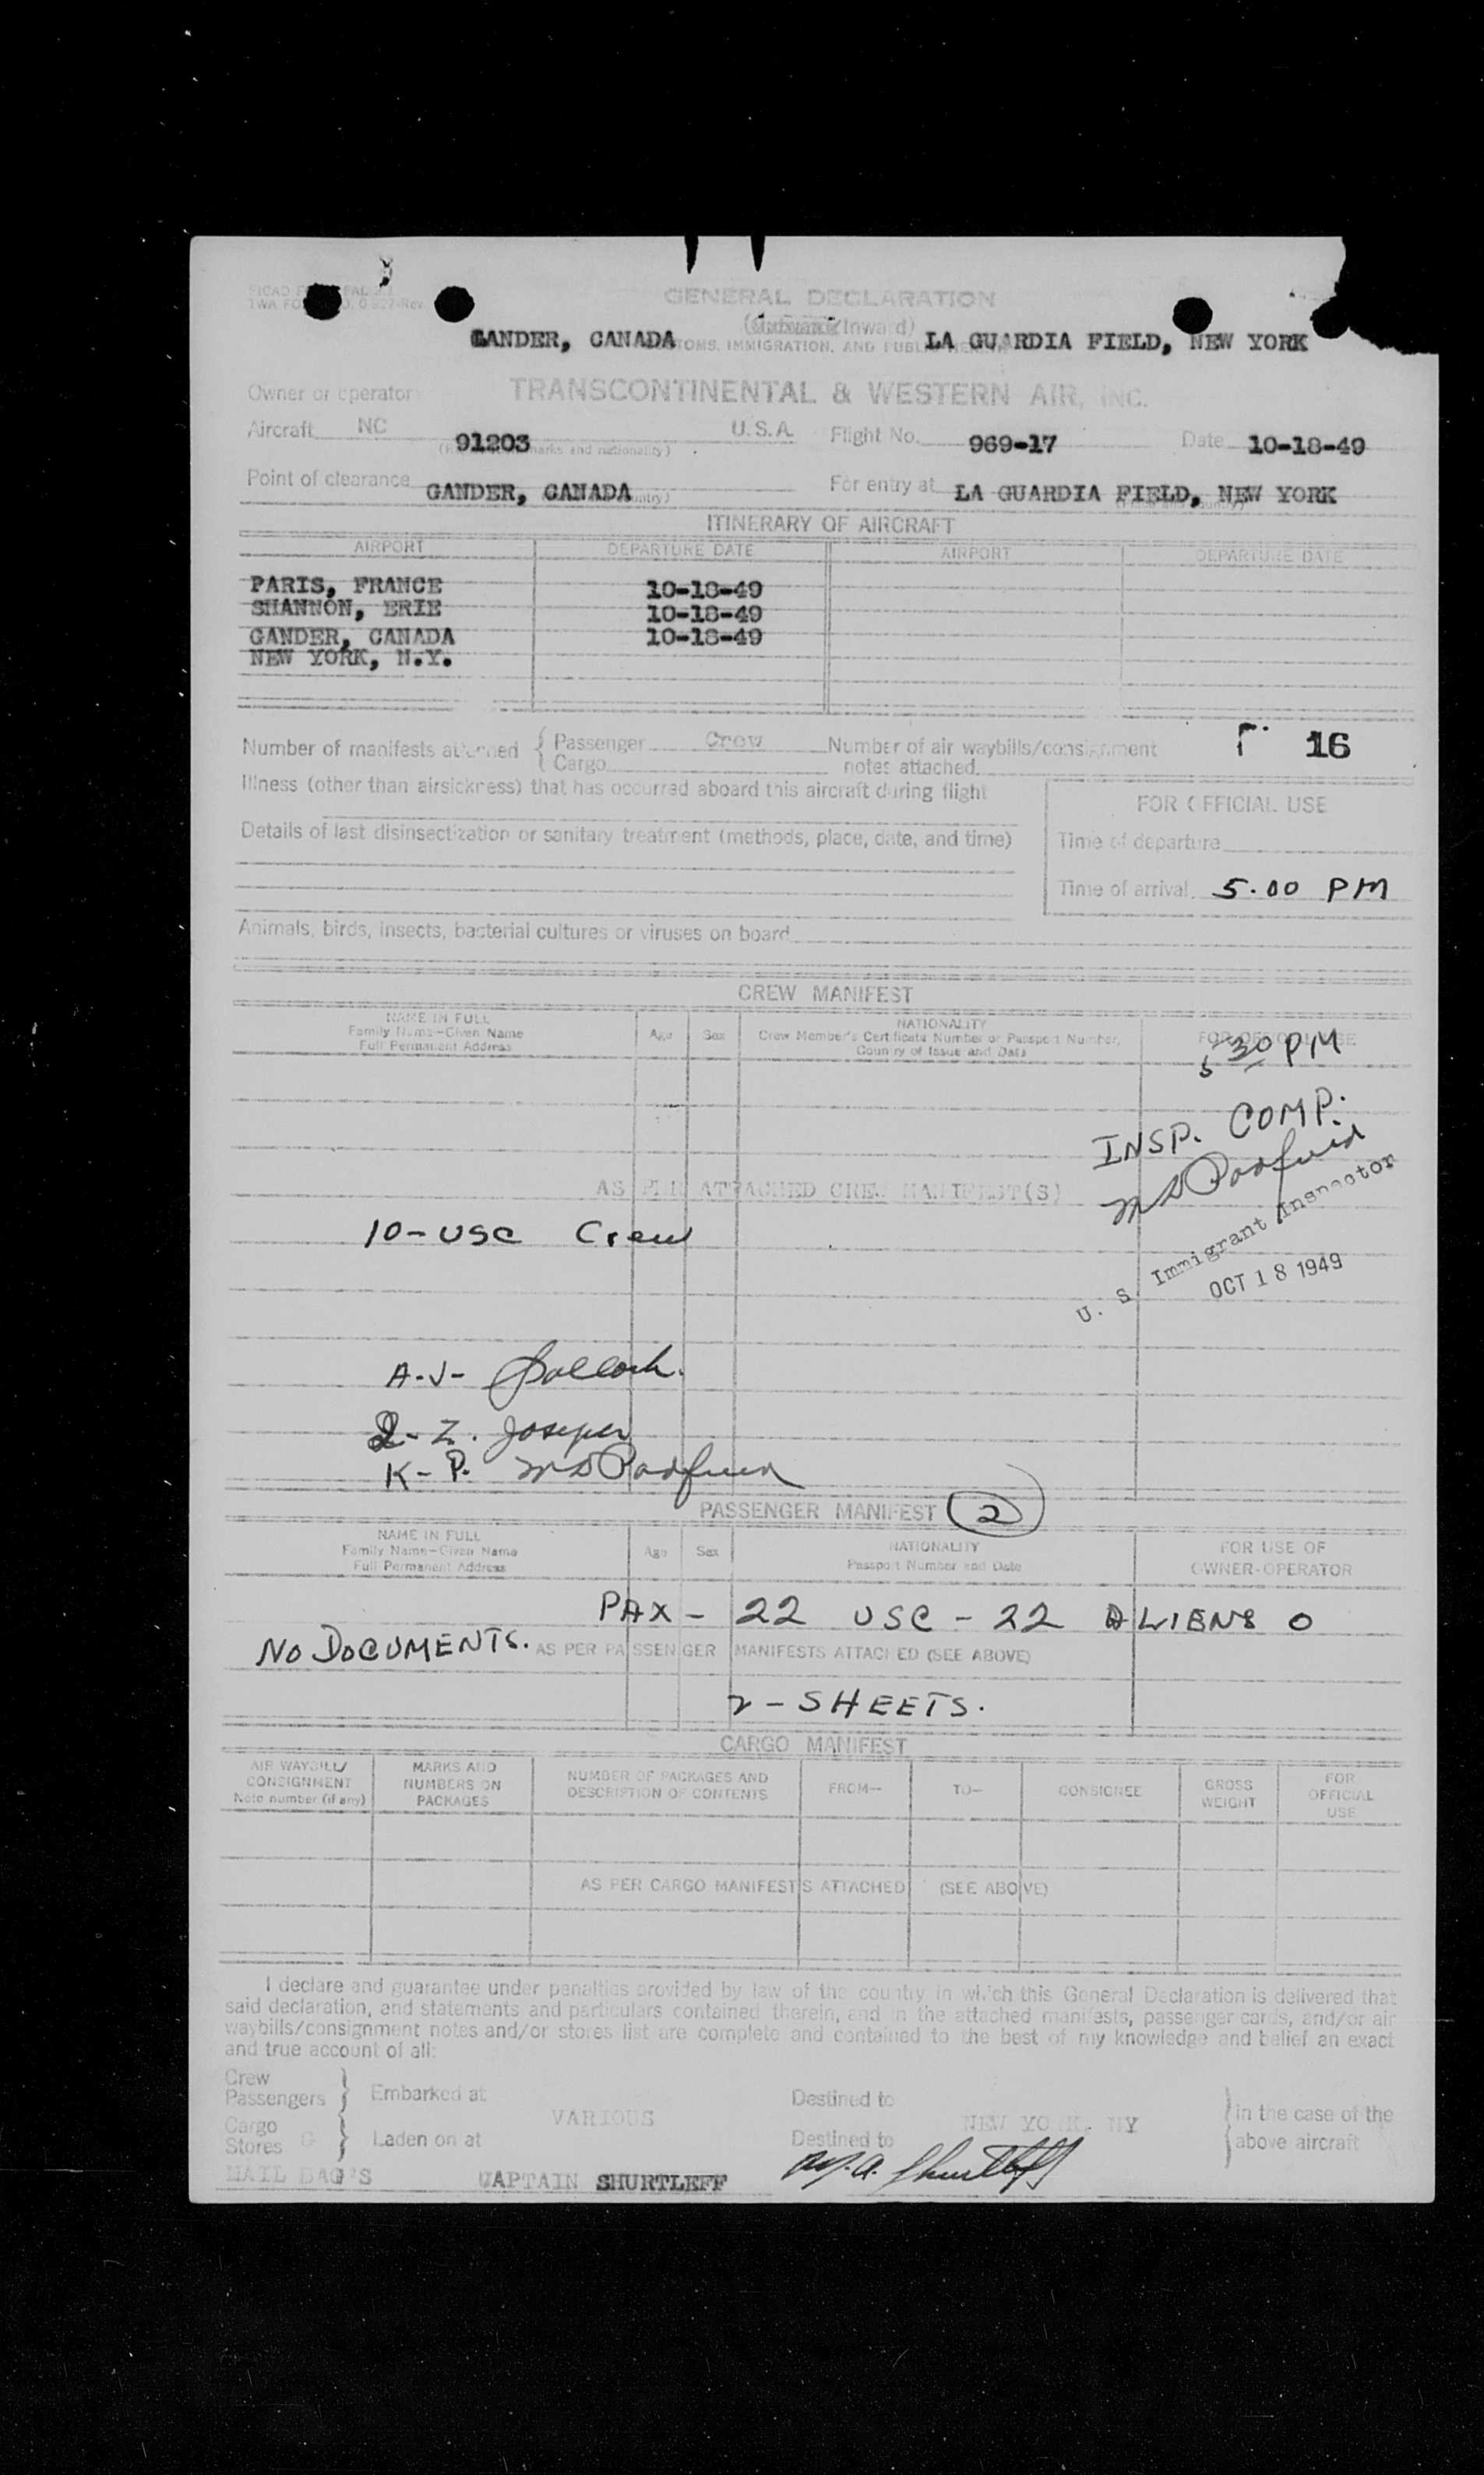 GENERAL DECLARATION
(Outward/Inward)
GANDER, CANADA LA GUARDIA FIELD, NEW YORK
IMMIGRATION, AND
Owner or operator TRANSCONTINENTAL & WESTERN AIR, INC.
Aircraft NC 91203 U.S.A. Flight No. 969-17 Date 10-18-49
marks and nationality)
Point of clearance GANDER, CANADA For entry at LA GUARDIA FIELD, NEW YORK
ITINERARY OF AIRCRAFT
AIRPORT DEPARTURE DATE AIRPORT DEPARTURE DATE
PARIS, FRANCE 10-18-49
SHANNON, ERIE 10-18-49
GANDER, CANADA 10-18-49
NEW YORK, N.Y.
Number of manifests attached { Passenger Crew Number of air waybills/consignment 16
Cargo notes attached
Illness (other than airsickness) that has occurred aboard this aircraft during flight
FOR OFFICIAL USE
Details of last disinsectization or sanitary treatment (methods, place, date, and time)
Time of departure
Time of arrival 5.00 PM
Animals, birds, insects, bacterial cultures or viruses on board
CREW MANIFEST
NAME IN FULL
Family Name-Given Name
Full Permanent Address
Age Sex
NATIONALITY
Crew Member's Certificate Number or Passport Number,
Country of Issue and Date
FOR OFFICIAL USE
5 30 PM
INSP. COMP.
U. S. Immigrant Inspector
OCT 18 1949
AS PER ATTACHED CREW MANIFEST(S)
10-USC Crew
A-J-
K-P.
PASSENGER MANIFEST 2
NAME IN FULL
Family Name-Given Name
Full Permanent Address
Age Sex
NATIONALITY
Passport Number and Date
FOR USE OF
OWNER-OPERATOR
PAX - 22 USC - 22 ALIENS 0
NO DOCUMENTS. AS PER PASSENGER MANIFESTS ATTACHED (SEE ABOVE)
2 - SHEETS.
CARGO MANIFEST
AIR WAYBILL/
CONSIGNMENT
Note number (if any)
MARKS AND
NUMBERS ON
PACKAGES
NUMBER OF PACKAGES AND
DESCRIPTION OF CONTENTS
FROM- TO- CONSIGNEE
GROSS
WEIGHT
FOR
OFFICIAL
USE
AS PER CARGO MANIFESTS ATTACHED (SEE ABOVE)
I declare and guarantee under penalties provided by law of the country in which this General Declaration is delivered that
said declaration, and statements and particulars contained therein, and in the attached manifests, passenger cards, and/or air
waybills/consignment notes and/or stores list are complete and contained to the best of my knowledge and belief an exact
and true account of all:
Crew
Passengers } Embarked at VARIOUS Destined to NEW YORK, NY } in the case of the
Cargo
Stores } Laden on at Destined to above aircraft
MAIL BAGS CAPTAIN SHURTLEFF